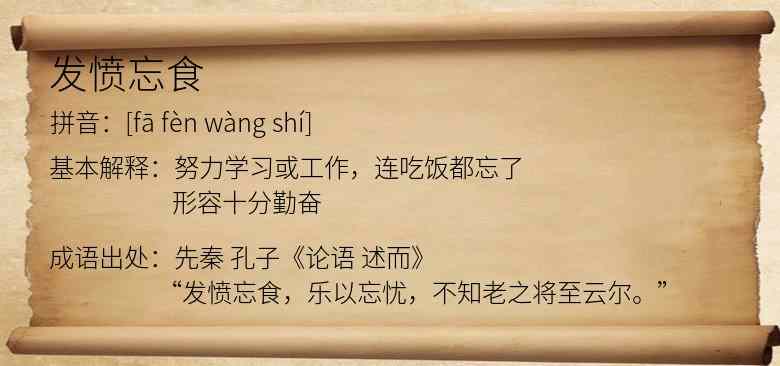 发愤忘食
拼音：[fā fèn wàng shí]
基本解释：努力学习或工作，连吃饭都忘了
形容十分勤奋
成语出处：先秦 孔子《论语 述而》
“发愤忘食，乐以忘忧，不知老之将至云尔。”